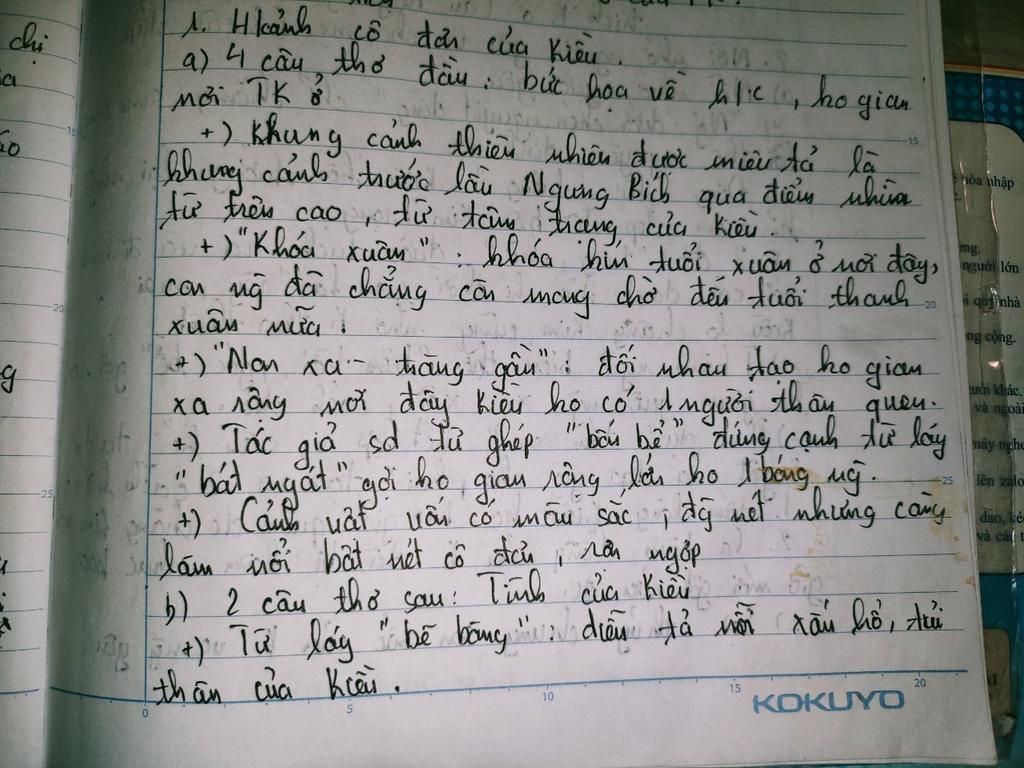 chị
1. Hkảnh cô đơn của Kiều.
a) 4 câu thơ đầu: bức họa về h/c, ko gian
nơi TK ở
+) Khung cảnh thiên nhiên được miêu tả là
khung cảnh trước lầu Ngưng Bích qua điểm nhìn
từ trên cao, từ tâm trạng của Kiều.
+) "Khóa xuân": khóa kín tuổi xuân ở nơi đây,
con ng đã chẳng còn mong chờ đến tuổi thanh
xuân nữa.
+) "Non xa - trăng gần": đối nhau tạo ko gian
xa rộng nơi đây Kiều ko có 1 người thân quen.
+) Tác giả sd từ ghép "bốn bể" đứng cạnh từ láy
"bát ngát" gợi ko gian rộng lớn ko 1 bóng ng.
+) Cảnh vật vốn có màu sắc, đg nét nhưng càng
làm nổi bật nét cô đơn, rợn ngợp
b) 2 câu thơ sau: Tình của Kiều
+) Từ láy "bẽ bàng": diễn tả nỗi xấu hổ, tủi
thân của Kiều.
0 5 10 15 20
KOKUYO
15
20
25
hòa nhập
người lớn
quý nhà
ng cộng.
và ngoài
lên zalo